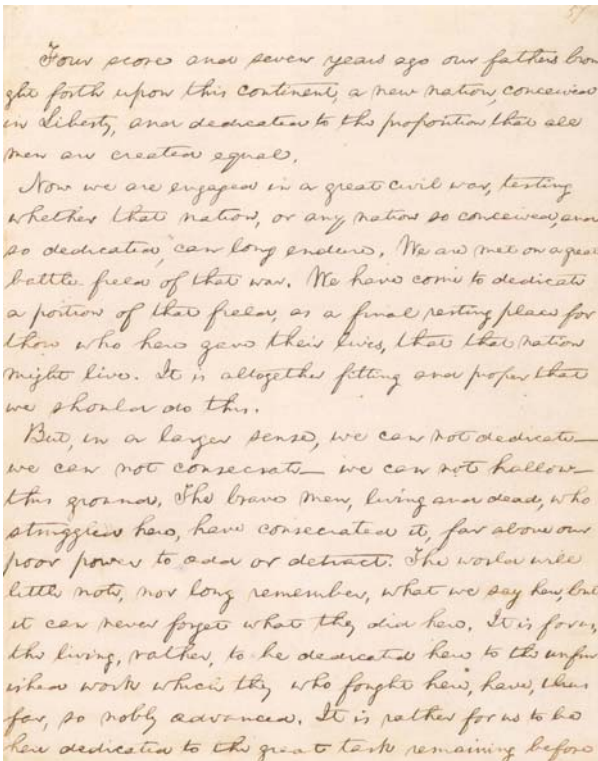 57
Four score and seven years ago our fathers brou
ght forth upon this continent, a new nation, conceived
in Liberty, and dedicated to the proposition that all
men are created equal.
Now we are engaged in a great civil war, testing
whether that nation, or any nation so conceived, and
so dedicated, can long endure. We are met on a great
battle field of that war. We have come to dedicate
a portion of that field, as a final resting place for
those who here gave their lives, that that nation
might live. It is altogether fitting and proper that
we should do this.
But, in a larger sense, we can not dedicate—
we can not consecrate— we can not hallow—
this ground. The brave men, living and dead, who
struggled here, have consecrated it, far above our
poor power to add or detract. The world will
little note, nor long remember, what we say here, but
it can never forget what they did here. It is for us,
the living, rather, to be dedicated here to the unfin
ished work which they who fought here, have, thus
far, so nobly advanced. It is rather for us to be
here dedicated to the great task remaining before